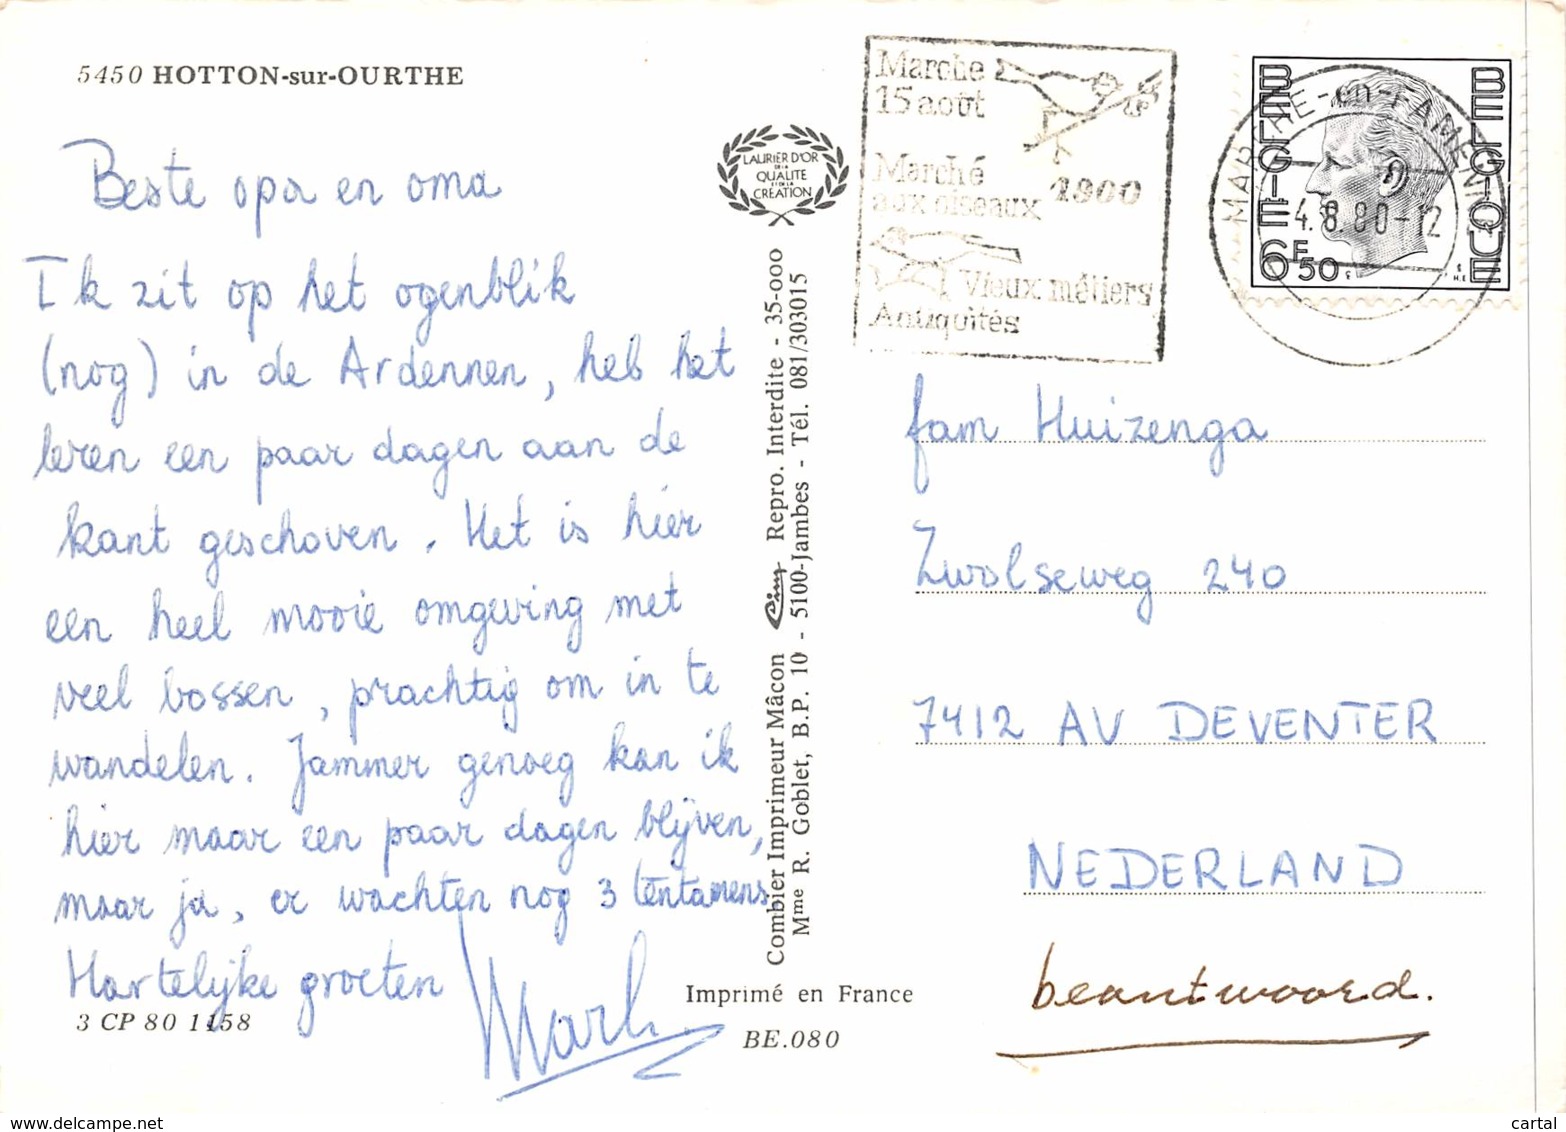 5450 HOTTON-sur-OURTHE
Beste opa en oma
Ik zit op het ogenblik
(nog) in de Ardennen, heb het
leren een paar dagen aan de
kant geschoven. Het is hier
een heel mooie omgeving met
veel bossen, prachtig om in te
wandelen. Jammer genoeg kan ik
hier maar een paar dagen blijven,
maar ja, er wachten nog 3 tentamens
Hartelijke groeten
Mark
3 CP 80 1158
LAURIER D'OR
DE LA
QUALITE
ET DE LA
CREATION
Combier Imprimeur Mâcon Cim Repro. Interdite - 35-000
Mme R. Goblet, B.P. 10 - 5100-Jambes - Tél. 081/303015
Imprimé en France
BE.080
Marche
15 août
Marché
aux oiseaux 1900
Vieux métiers
Antiquités
MARCHE-en-FAMENNE
4.8.80-12
BELGIE BELGIQUE
6F50
fam Huizenga
Zwolseweg 240
7412 AV DEVENTER
NEDERLAND
beantwoord.
cartal
www.delcampe.net